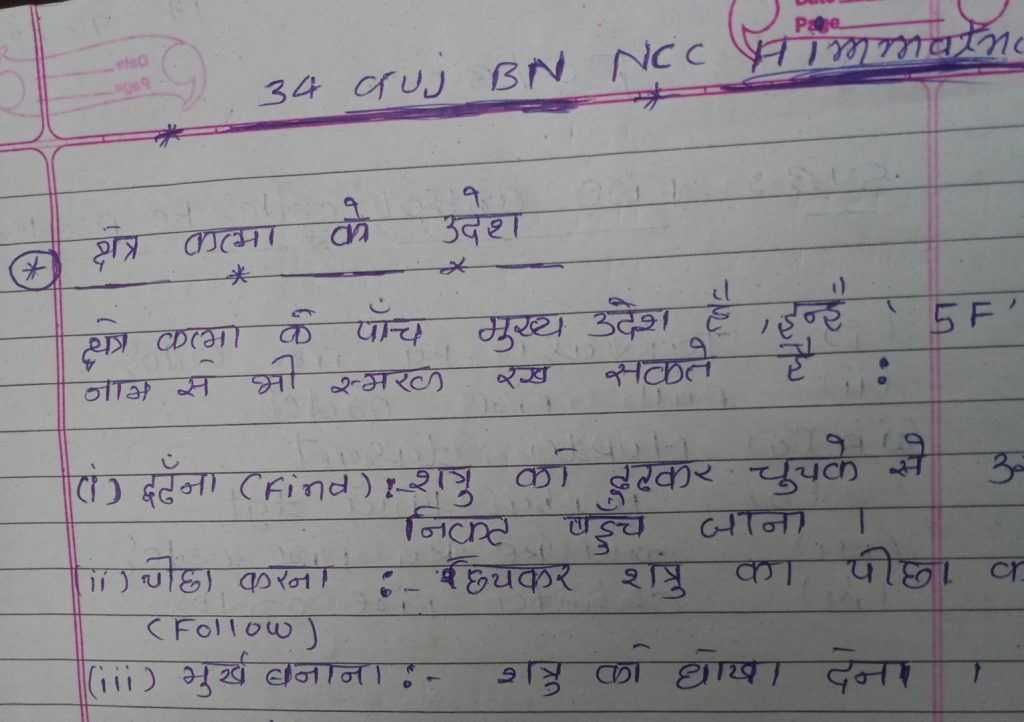 Date
Page
34 GUJ BN NCC Himmatna
क्षेत्र कला के उदेश
क्षेत्र कला के पाँच मुख्य उदेश है , इन्है ' 5F '
नाम से भी स्मरण रख सकते है :
(i) ढूढँना (Find) :- शत्रु को ढुढकर चुपके से
निकट पहुँच जाना ।
(ii) पीछा करना :- छिपकर शत्रु का पीछा क
(Follow)
(iii) मुर्ख बनाना :- शत्रु को धोखा देना ।